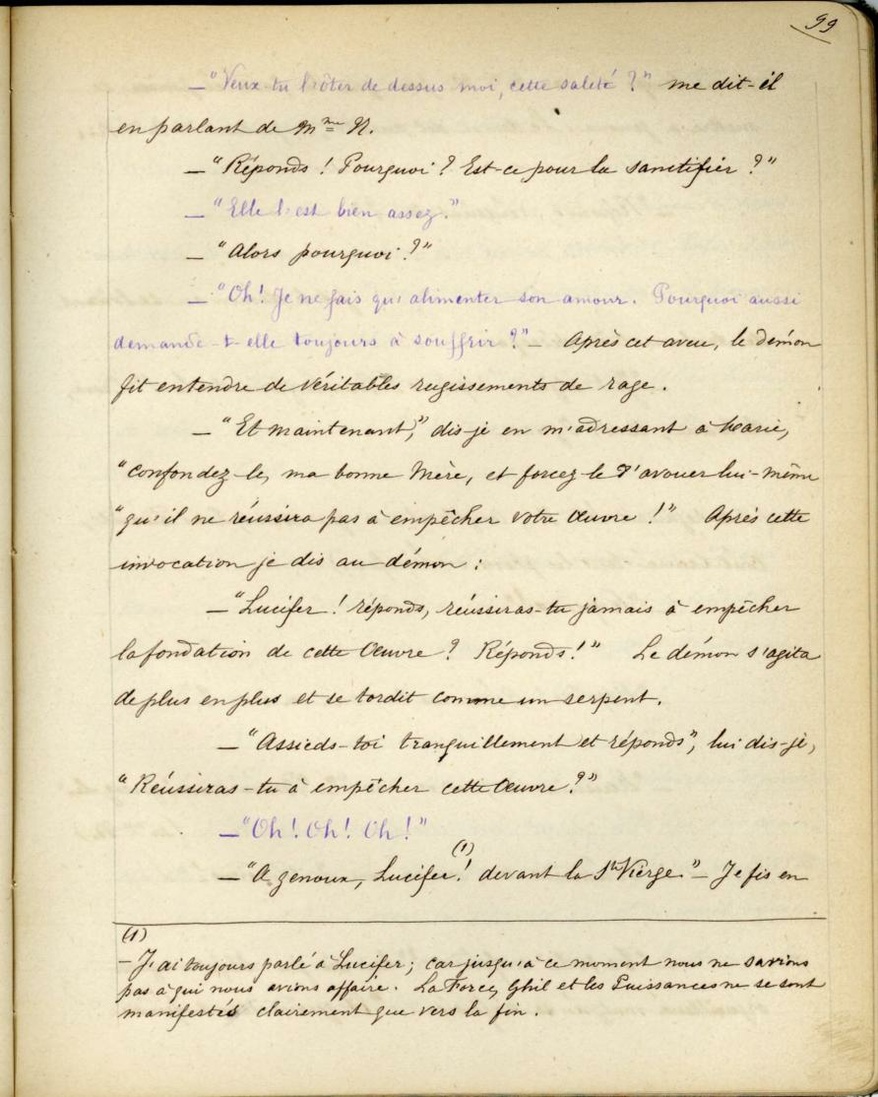 99
—"Veux-tu l'ôter de dessus moi, cette saleté ?" me dit-il
en parlant de Mme N.
—"Réponds ! Pourquoi ? Est-ce pour la sanctifier ?"
—"Elle l'est bien assez."
—"Alors pourquoi ?"
—"Oh ! Je ne fais qu'alimenter son amour. Pourquoi aussi
demande-t-elle toujours à souffrir ?"— Après cet aveu, le démon
fit entendre de véritables rugissements de rage.
—"Et maintenant," dis-je en m'adressant à Marie,
"confondez-le, ma bonne Mère, et forcez-le d'avouer lui-même
"qu'il ne réussira pas à empêcher votre Œuvre !" Après cette
invocation je dis au démon :
—"Lucifer ! réponds, réussiras-tu jamais à empêcher
la fondation de cette Œuvre ? Réponds !" Le démon s'agita
de plus en plus et se tordit comme un serpent.
—"Assieds-toi tranquillement et réponds", lui dis-je,
"Réussiras-tu à empêcher cette Œuvre ?"
—"Oh ! Oh ! Oh !"
—"A genoux, Lucifer (1) ! devant la Ste Vierge."— Je fis en
(1)
— J'ai toujours parlé à Lucifer ; car jusqu'à ce moment nous ne savions
pas à qui nous avions affaire. La Force, Ghil et les Puissances ne se sont
manifestés clairement que vers la fin.